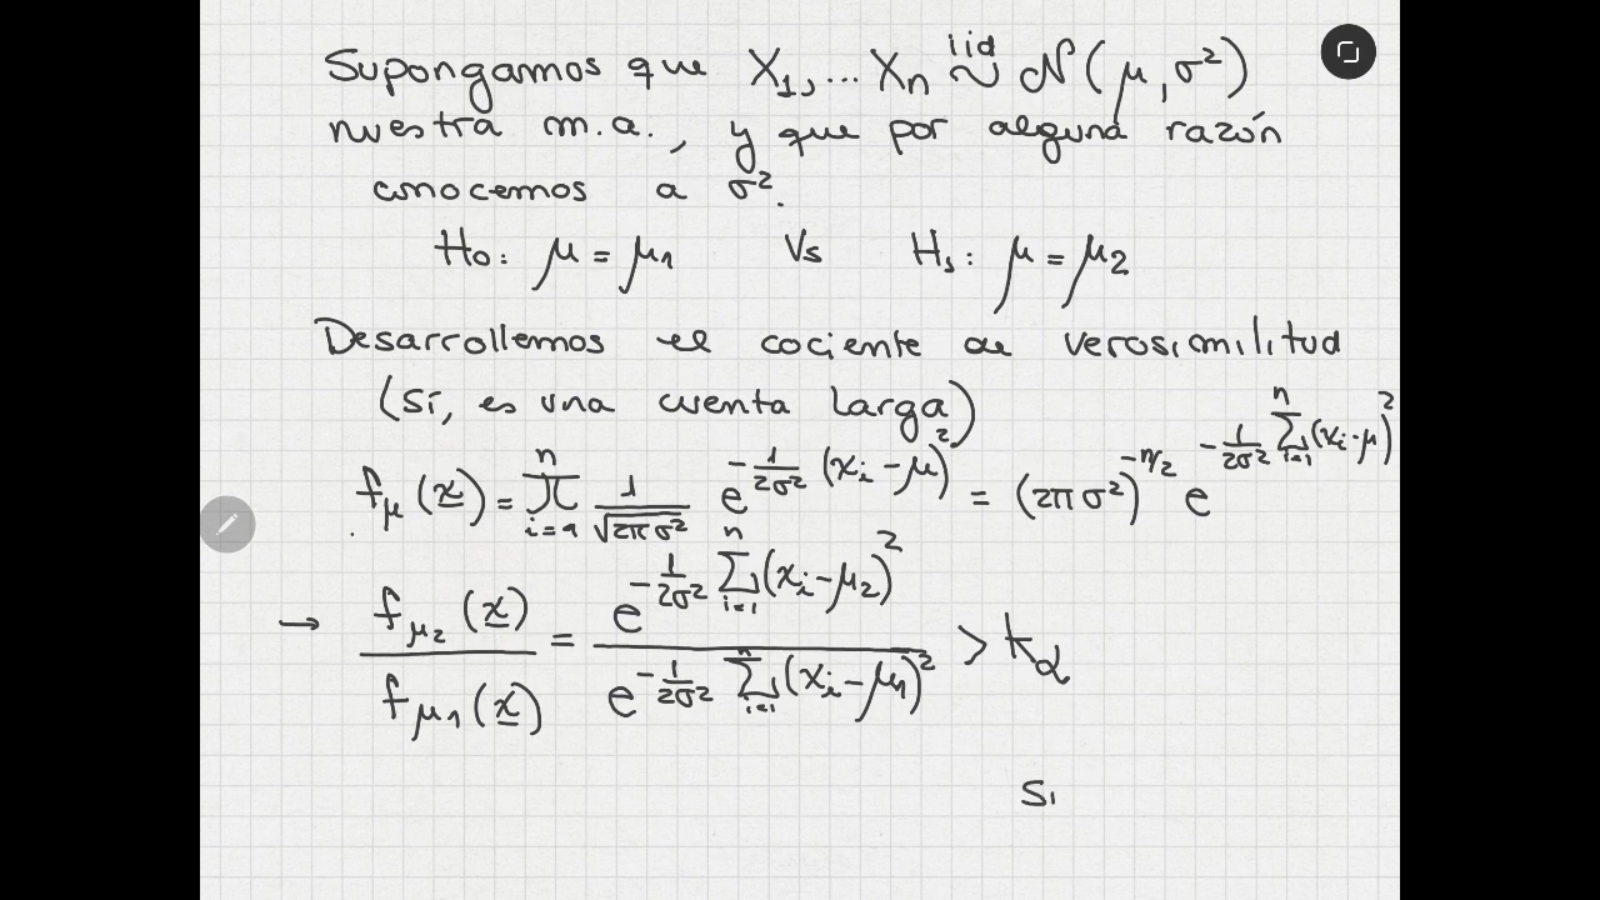 Supongamos que X₁,...Xₙ iid ~ N(μ, σ²)
nuestra m.a., y que por alguna razón
conocemos a σ².
H₀: μ = μ₁ Vs H₁: μ = μ₂
Desarrollemos el cociente de verosimilitud
(Sí, es una cuenta larga)
f_μ(x̲) = ∏_{i=1}^{n} 1/√(2πσ²) e^{-1/(2σ²) (xᵢ-μ)²} = (2πσ²)^{-n/2} e^{-1/(2σ²) ∑_{i=1}^{n} (xᵢ-μ)²}
→ f_{μ₂}(x̲) / f_{μ₁}(x̲) = e^{-1/(2σ²) ∑_{i=1}^{n} (xᵢ-μ₂)²} / e^{-1/(2σ²) ∑_{i=1}^{n} (xᵢ-μ₁)²} > k_α
Si